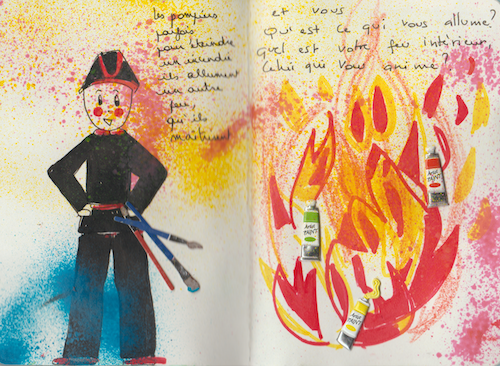 les pompiers
parfois
pour éteindre
un incendie
ils allument
un autre
feu,
qu'ils
maîtrisent
et vous
Qu'est ce qui vous allume?
Quel est votre feu intérieur
Celui qui vous anime?